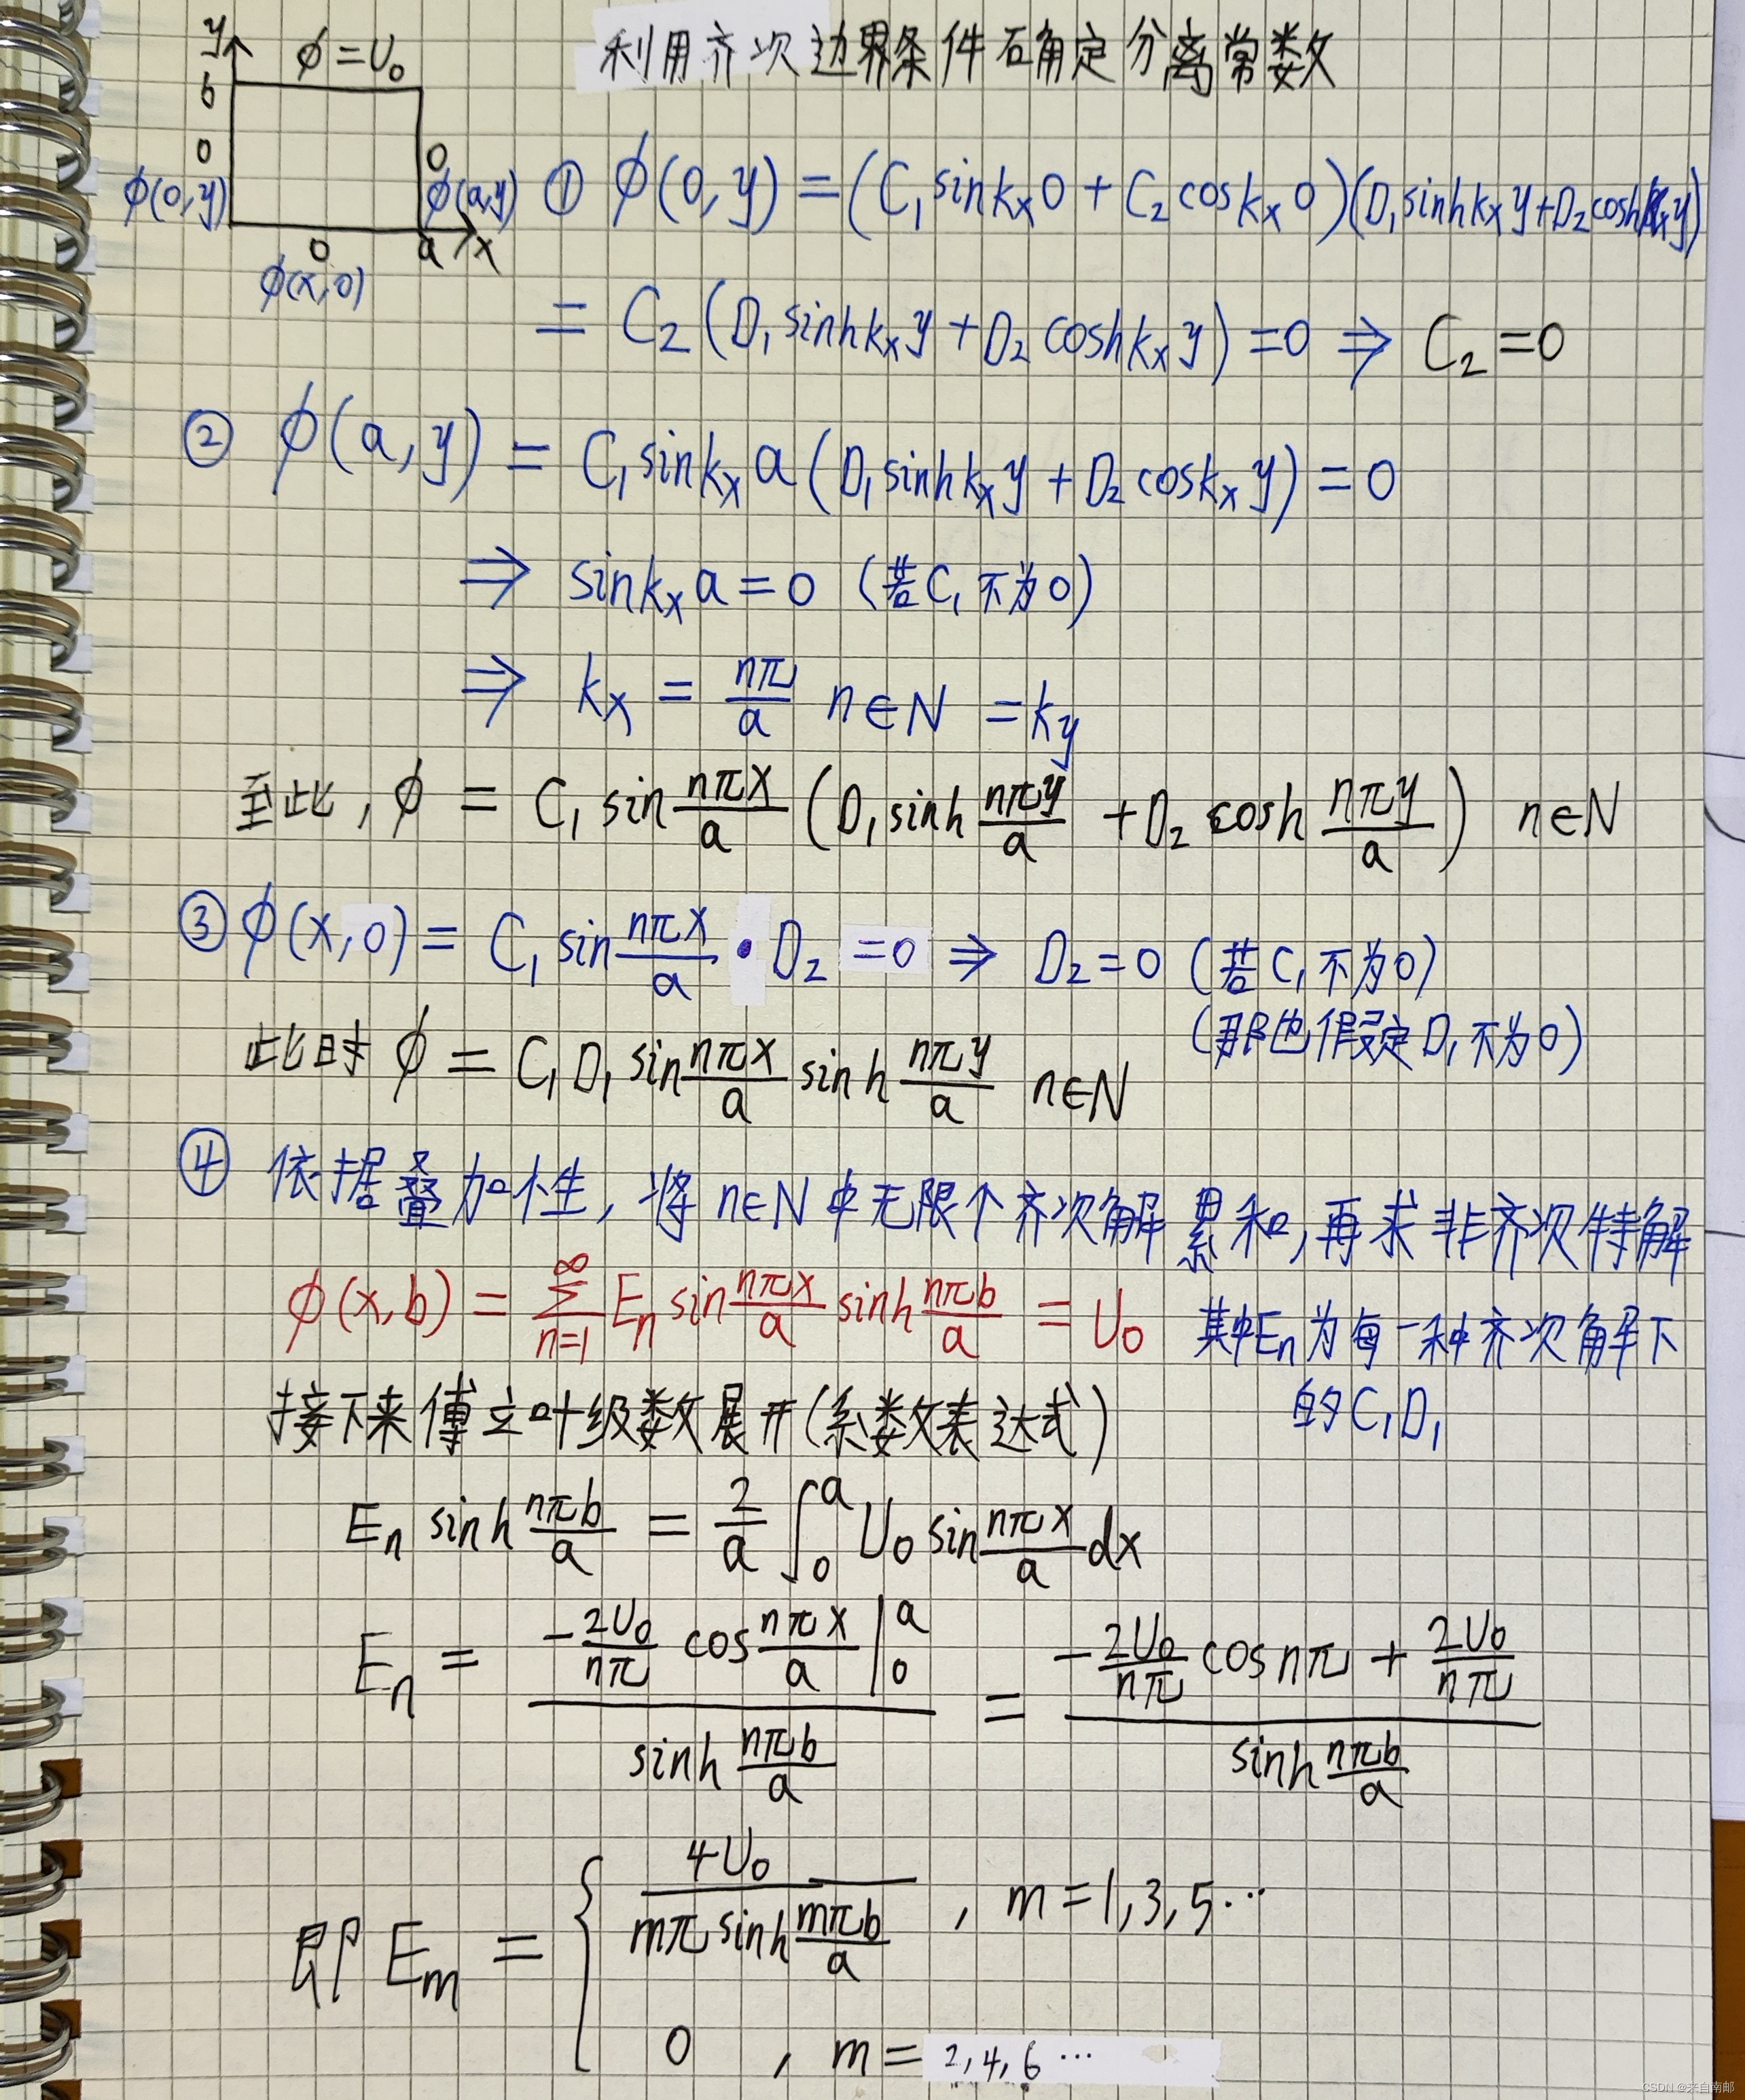 利用齐次边界条件确定分离常数
y
φ=U₀
b
0
0
φ(0,y)
φ(a,y)
0
a
x
φ(x,0)
① φ(0,y)=(C₁sinkₓ0+C₂coskₓ0)(D₁sinhkₓy+D₂coshkₓy)
=C₂(D₁sinhkₓy+D₂coshkₓy)=0⇒C₂=0
② φ(a,y)=C₁sinkₓa(D₁sinhkₓy+D₂coskₓy)=0
⇒ sinkₓa=0 (若C₁不为0)
⇒ kₓ=nπ/a n∈N =k_y
至此,φ=C₁sin nπx/a (D₁sinh nπy/a +D₂cosh nπy/a) n∈N
③ φ(x,0)=C₁sin nπx/a •D₂=0⇒D₂=0 (若C₁不为0)
(那也假定D₁不为0)
此时φ=C₁D₁sin nπx/a sinh nπy/a n∈N
④ 依据叠加性,将n∈N中无限个齐次解累和,再求非齐次特解
φ(x,b)=∑_{n=1}^{∞}Eₙsin nπx/a sinh nπb/a =U₀ 其中Eₙ为每一种齐次解下
的C₁D₁
接下来傅立叶级数展开(系数表达式)
Eₙ sinh nπb/a = 2/a ∫₀ᵃ U₀ sin nπx/a dx
Eₙ = (-2U₀/nπ cos nπx/a |₀ᵃ)/(sinh nπb/a) = (-2U₀/nπ cosnπ + 2U₀/nπ)/(sinh nπb/a)
即Eₘ = { 4U₀/(mπ sinh mπb/a) , m=1,3,5…
0 , m=2,4,6…
CSDN @来自南邮